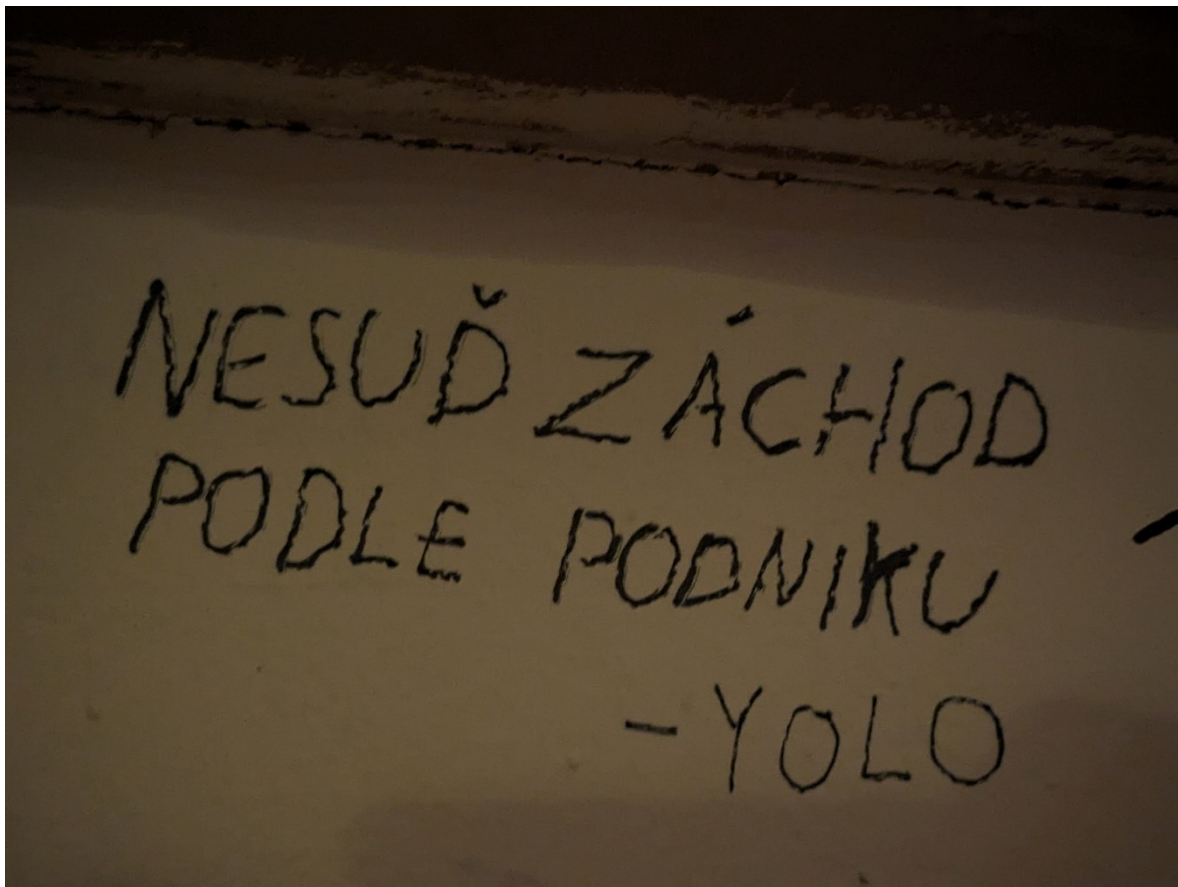 NESUĎ ZÁCHOD
PODLE PODNIKU
- YOLO